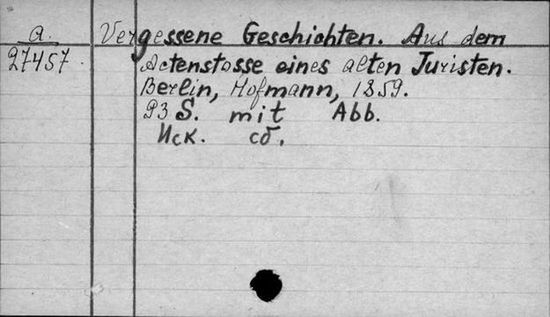 a. Vergessene Geschichten. Aus dem
27457. Actenstosse eines alten Juristen.
Berlin, Hofmann, 1859.
93 S. mit Abb.
Иск. сб.